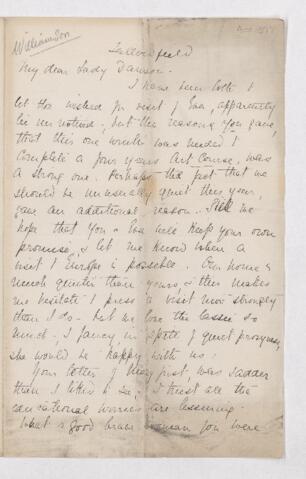 Williamson
My dear Lady Dawson.
I have been loth to
let the wished for visit of Eva, apparently
lie unnoticed, but the reasons you gave,
that this one winter was needed to
complete a four years Art Course, was
a strong one. Perhaps the fact that we
should be unusually quiet this year,
gave an additional reason. Still we
hope that you & Eva will keep your own
promise, & let me know when a
visit to Europe is possible. Our home is
much quieter than yours, & this makes
me hesitate to press a visit more strongly
than I do - but we love the lassie so
much. I fancy, in spite of quiet prosyness,
she would be happy with us!
Your letter of May just, was sadder
than I liked to see, I trust all the
educational worries are lessening.
What a good brave woman you were